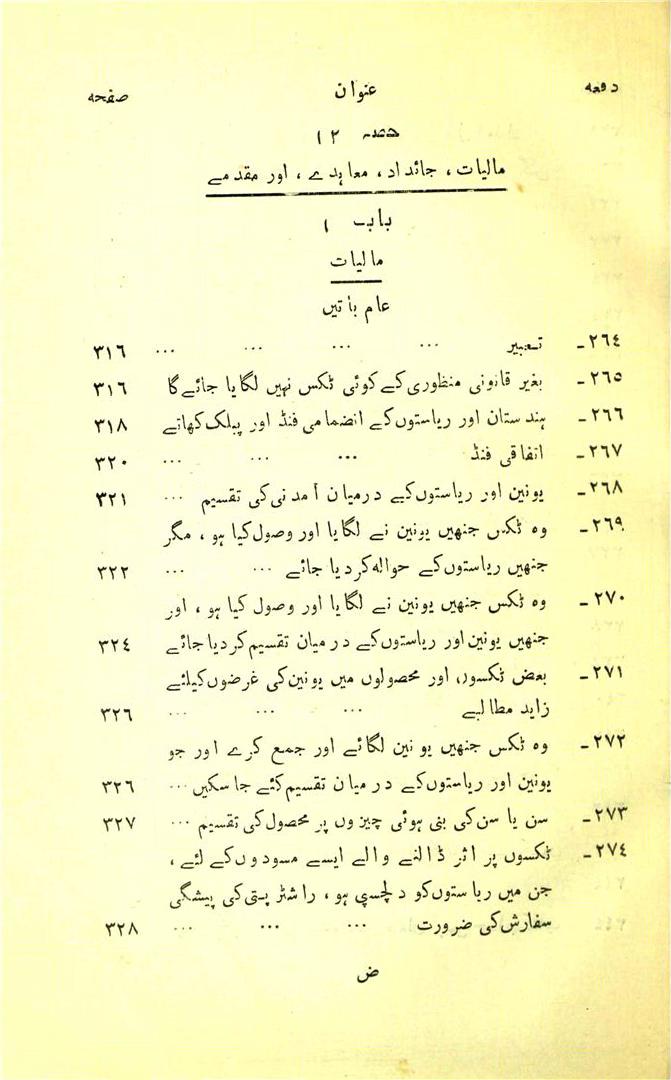 دفعہ عنوان صفحہ
حصہ ۱۲
مالیات، جائداد، معاہدے، اور مقدمے
باب ۱
مالیات
عام باتیں
۲٦٤۔ تعبیر ... ... ... ... ۳۱٦
۲٦۵۔ بغیر قانونی منظوری کے کوئی ٹکس نہیں لگایا جائے گا ۳۱٦
۲٦٦۔ ہندستان اور ریاستوں کے انضمامی فنڈ اور پبلک کھاتے ۳۱۸
۲٦۷۔ اتفاقی فنڈ ... ... ... ۳۲۰
۲٦۸۔ یونین اور ریاستوں کے درمیان آمدنی کی تقسیم ... ۳۲۱
۲٦۹۔ وہ ٹکس جنھیں یونین نے لگایا اور وصول کیا ہو، مگر
جنھیں ریاستوں کے حوالہ کر دیا جائے ... ... ۳۲۲
۲۷۰۔ وہ ٹکس جنھیں یونین نے لگایا اور وصول کیا ہو، اور
جنھیں یونین اور ریاستوں کے درمیان تقسیم کر دیا جائے ۳۲٤
۲۷۱۔ بعض ٹکسوں اور محصولوں میں یونین کی غرضوں کیلئے
زاید مطالبے ... ... ... ۳۲٦
۲۷۲۔ وہ ٹکس جنھیں یونین لگائے اور جمع کرے اور جو
یونین اور ریاستوں کے درمیان تقسیم کئے جا سکیں ... ۳۲٦
۲۷۳۔ سن یا سن کی بنی ہوئی چیزوں پر محصول کی تقسیم ... ۳۲۷
۲۷٤۔ ٹکسوں پر اثر ڈالنے والے ایسے مسودوں کے لئے،
جن میں ریاستوں کو دلچسپی ہو، راشٹر پتی کی پیشگی
سفارش کی ضرورت ... ... ... ۳۲۸
ض